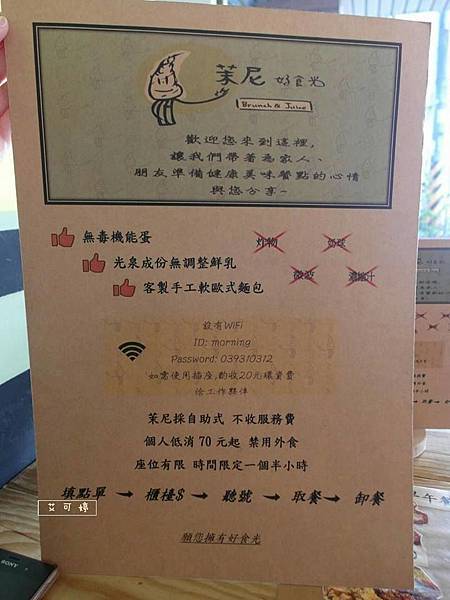 茉尼 好食光
Brunch & Juice
歡迎您來到這裡,
讓我們帶著為家人、
朋友準備健康美味餐點的心情
與您分享~
無毒機能蛋
光泉成份無調整鮮乳
客製手工軟歐式麵包
炸物
奶球
微波
濃縮汁
設有WiFi
ID: morning
Password: 039310312
如需使用插座,酌收20元環資費
給工作夥伴
茉尼採自助式 不收服務費
個人低消70元起 禁用外食
座位有限 時間限定一個半小時
填點單 → 櫃檯$ → 聽號 → 取餐 → 卸餐
願您擁有好食光
艾可婷
SONY